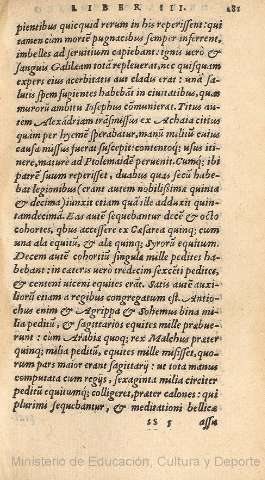 LIBER III. 281
pientibus quicquid rerum in his reperissent: qui
tamen cum mortē pugnacibus semper inferrent,
imbelles ad seruitium capiebant: ignis uerò &
sanguis Galilæam totā repleuerat, nec quisquam
expers eius acerbitatis aut cladis erat: una sa/
lutis spem fugientes habebāt in ciuitatibus, quas
murorū ambitu Iosephus cōmunierat. Titus au/
tem Alexādriam trāsmissus ex Achaia citius
quàm per hyemē sperabatur, manū militū cuius
causa missus fuerat suscepit: contentoq; usus iti/
nere, maturè ad Ptolemaidē peruenit. Cumq; ibi
patrē suum reperisset, duabus quas secū habe/
bat legionibus (erant autem nobilißimæ quinta
& decima) iunxit etiam quā ille adduxit quin/
tamdecimā. Eas autē sequebantur decē & octo
cohortes, quibus accessere ex Cæsarea quinq; cum
una ala equitū, & alæ quinq; Syrorū equitum.
Decem autē cohortiū singulæ mille pedites ha/
bebant: in cæteris uerò tredecim sexcēti peditēs,
& centeni uiceni equites erāt. Satis autē auxi/
liorū etiam à regibus congregatum est. Antio/
chus enim & Agrippa & Sohemus bina mi/
lia peditū, & sagittarios equites mille præbue/
runt: cum Arabiæ quoq; rex Malchus præter
quinq; milia peditū, equites mille misisset, quo/
rum pars maior erant sagittarij: ut tota manus
computata cum regijs, sexaginta milia circiter
peditū equitumq; colligeret, præter calones: qui
plurimi sequebantur, & meditationi bellicæ
SS 5 assu
Ministerio de Educación, Cultura y Deporte